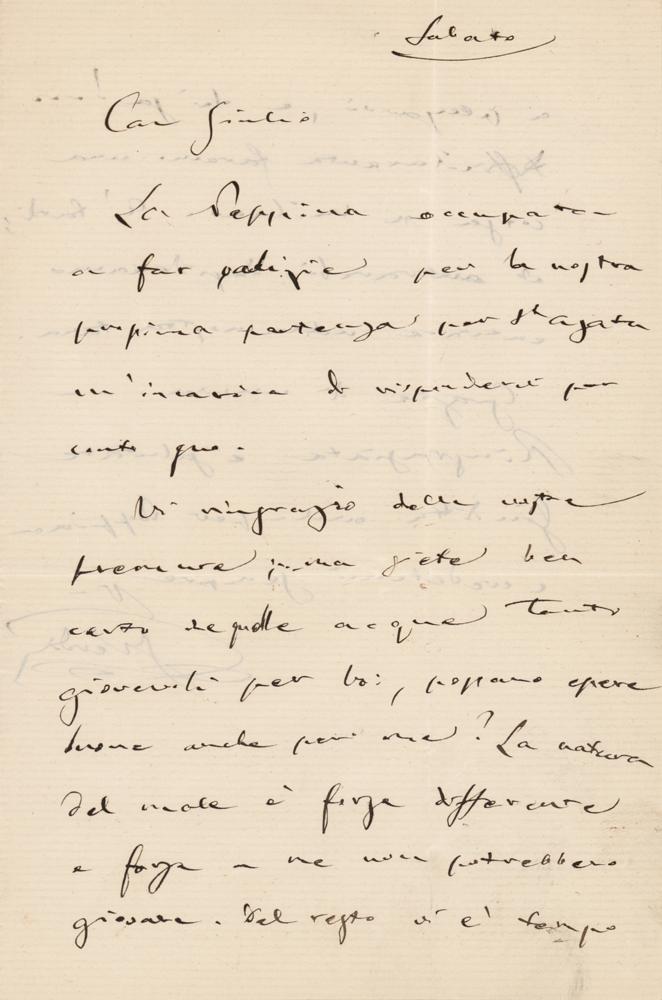 Sabato
Car Giulio
La Peppina occupata
a far valigie per la nostra
prossima partenza per St Agata
m'incarica di rispondervi per
conto suo.
Vi ringrazio delle vostre
premure; ma siete ben
certo che quelle acque tanto
giovevoli per Voi, possano essere
buone anche per me? La natura
del male è forse differente
e forse a me non potrebbero
giovare. Del resto vi e' tempo